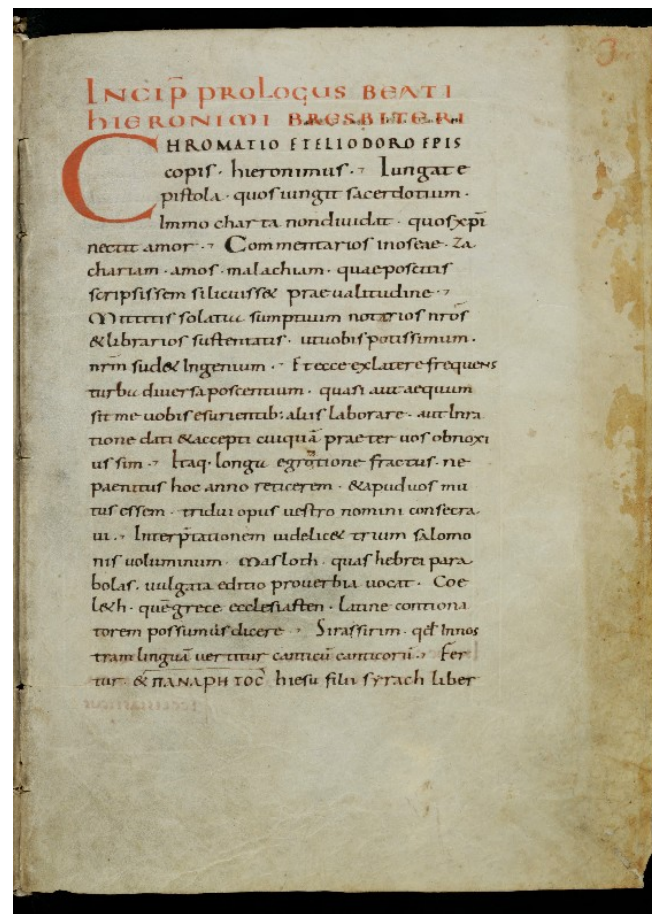 3
INCIP̄ PROLOGUS BEATI
HIERONIMI BRESBITERI
CHROMATIO ETELIODORO EPIS
copis · hieronimus · Iungat e
pistola · quos iungit sacerdotium ·
Immo charta nondiuidat · quos xpī
nectit amor · Commentarios inoseae · Za
chariam · amos · malachiam · quaeposcitis
scripsissem silicuiss& praeualitudine ·
Mittitis solatia sumptuum notarios nrōs
&librarios sustentatis · utuobis potissimum ·
nrm̄ sud& Ingenium · Et ecce exlatere frequens
turba diuersa poscentium · quasi aut aequum
sit me uobis esurientib: aliis laborare · aut Inra
tione dati &accepti cuiquā praeter uos obnoxi
us sim · Itaq· longa egrotione fractus · ne
paenitus hoc anno reticerem · &apuduos mu
tus essem · tridui opus uestro nomini consecra
ui · Interp̄tationem uidelic& trium salomo
nis uoluminum · Masloth · quas hebrei para
bolas · uulgata editio prouerbia uocat · Coe
l&h · quēgrece ecclesiasten · Latine contiona
torem possumus dicere · Sirassirim · qd̄ Innos
tram linguā uertitur canticū canticorū · Fer
tur & ΠΑΝΑΡΗΤΟC hiesu filii syrach liber